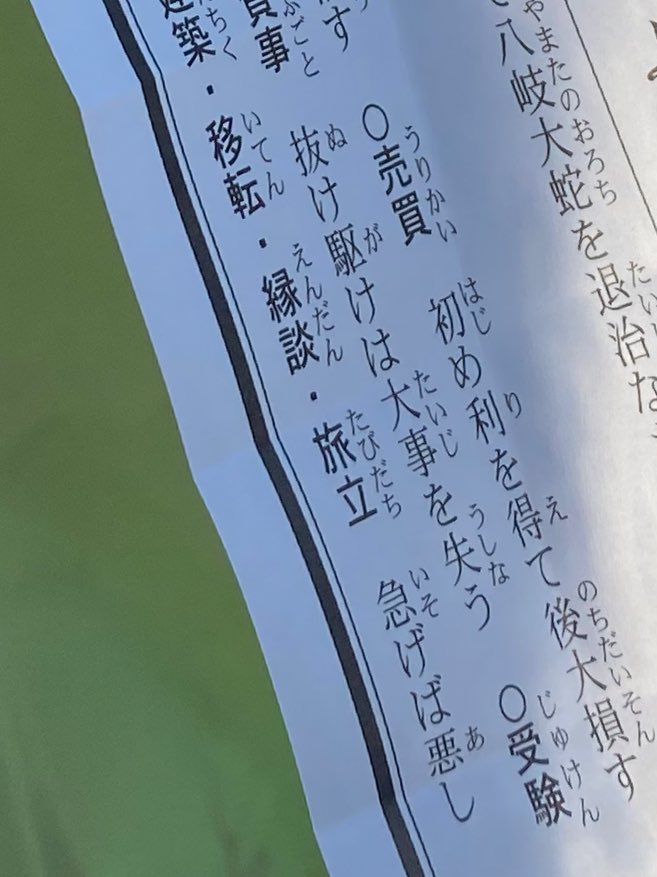 て八岐大蛇を退治な
す ○売買 初め利を得て後大損す
負事 抜け駆けは大事を失う ○受験
建築・移転・縁談・旅立 急げば悪し